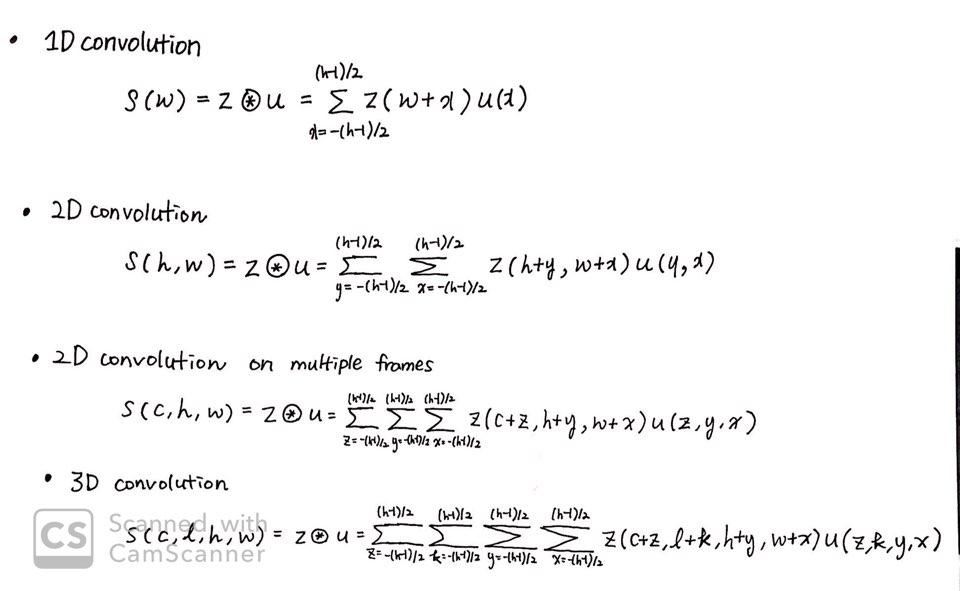 • 1D convolution
S(w) = z ⊛ u = ∑_{x=-(h-1)/2}^{(h-1)/2} z(w+x)u(x)
• 2D convolution
S(h,w) = z ⊛ u = ∑_{y=-(h-1)/2}^{(h-1)/2} ∑_{x=-(h-1)/2}^{(h-1)/2} z(h+y, w+x)u(y,x)
• 2D convolution on multiple frames
S(c,h,w) = z ⊛ u = ∑_{z=-(h-1)/2}^{(h-1)/2} ∑_{y=-(h-1)/2}^{(h-1)/2} ∑_{x=-(h-1)/2}^{(h-1)/2} z(c+z, h+y, w+x)u(z,y,x)
• 3D convolution
S(c,l,h,w) = z ⊛ u = ∑_{z=-(h-1)/2}^{(h-1)/2} ∑_{k=-(h-1)/2}^{(h-1)/2} ∑_{y=-(h-1)/2}^{(h-1)/2} ∑_{x=-(h-1)/2}^{(h-1)/2} z(c+z, l+k, h+y, w+x)u(z,k,y,x)
CS Scanned with
CamScanner